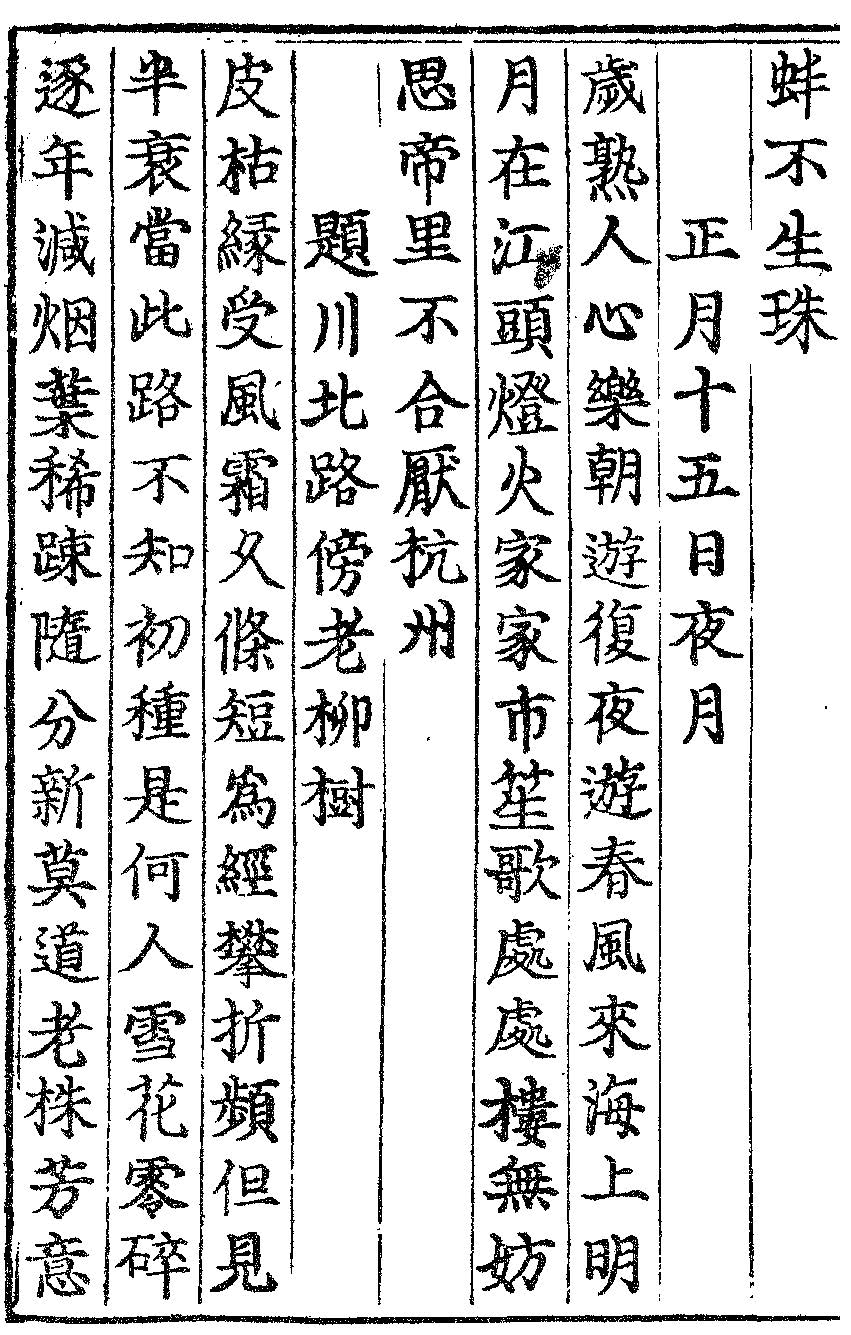 蚌不生珠
正月十五日夜月
歲熟人心樂朝遊復夜遊春風來海上明
月在江頭燈火家家市笙歌處處樓無妨
思帝里不合厭杭州
題川北路傍老柳樹
皮枯緣受風霜久條短為經攀折頻但見
半衰當此路不知初種是何人雪花零碎
逐年減烟葉稀踈隨分新莫道老株芳意